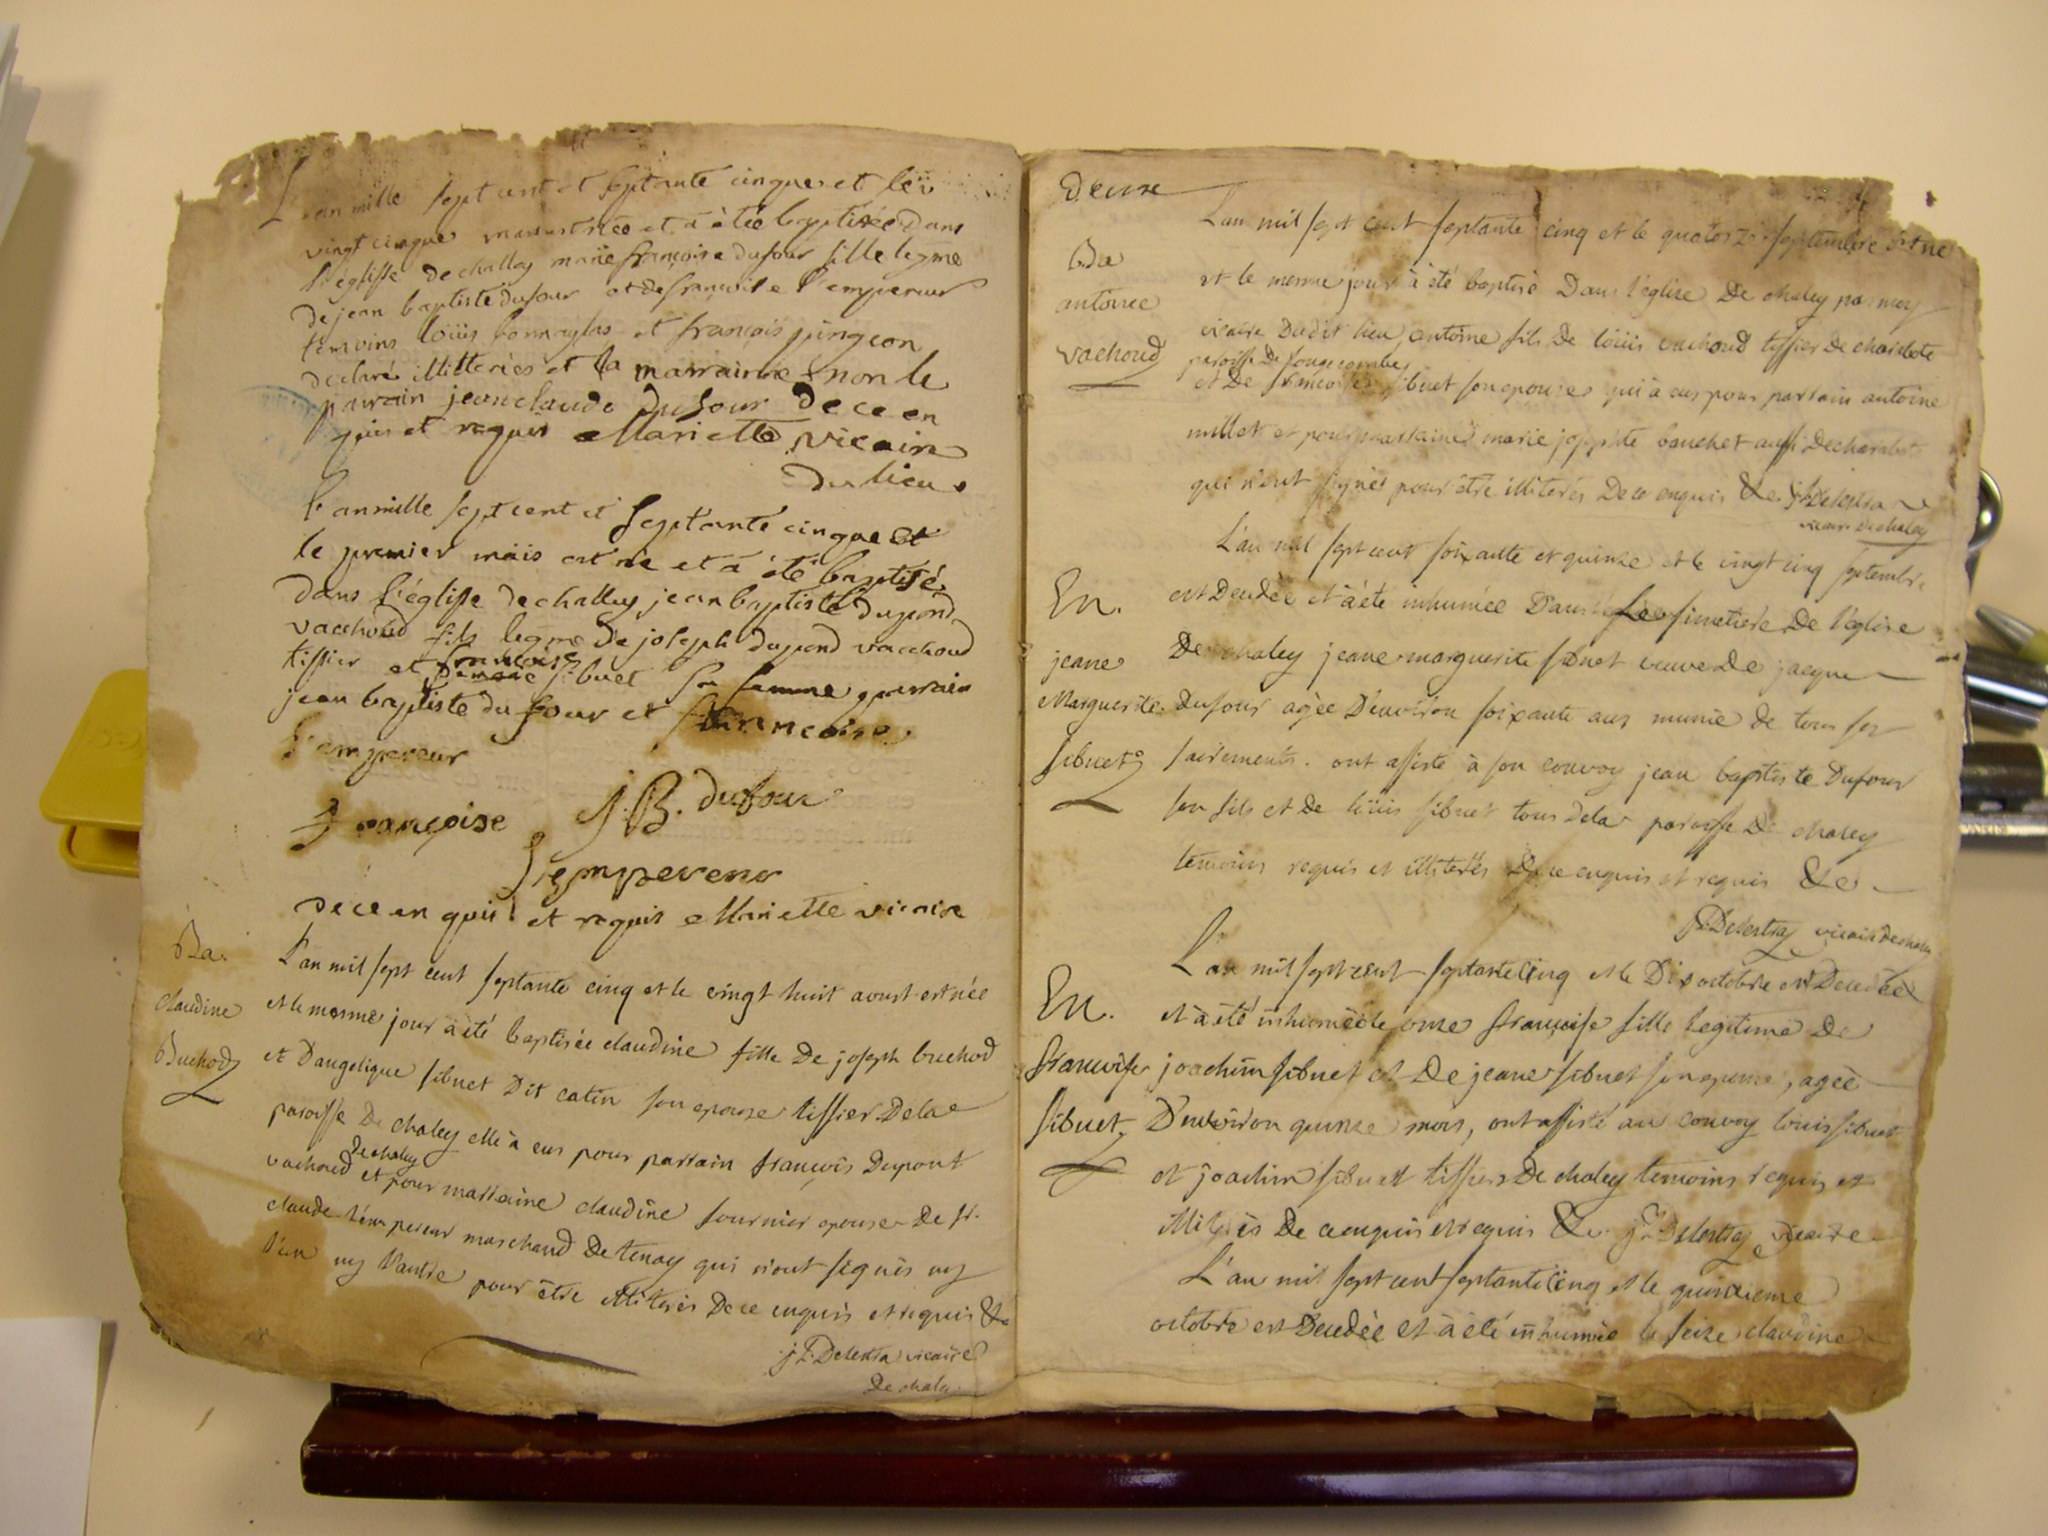 L'an mille sept cent et septante cinque et le
vingt cinque mars est née et à étée baptizée dans
l'églisse de challey marie françoise dufour fille legme
de jean baptiste dufour et de françoise l'empereur
temoins loüis et françois jungeon
declaré illitteriés et la marrainne & non le
parrain jean claude dufour de ce en
quis et requis Mariette vicaire
du lieu
l'an mille sept cent et septante cinque et
le premier mäis est né et à été baptisé
dans l'églisse de challey jean baptiste dupond
vacchoud fils legme de joseph dupond vacchoud
tissier et françoise sibuet sa femme parrain
jean baptiste du four et francoise
l'empereur
J.B. dufour
françoise
l'empereur
de ce en quis et requis Mariette vicaire
Ba.
claudine
Buchod
L'an mil sept cent septante cinq et le vingt huit aoust est née
et le mesme jour à été baptisée claudine fille De joseph buchod
et D'angelique sibuet Dit catin son epouse tissier De la
paroisse De chaley elle à eus pour parrain françois Dupont
vachoud De chaley et pour marraine claudine fournier epouse De sr.
claude l'émpereur marchand De tenay qui n'ont signés ny
l'un ny l'autre pour être illiterés De ce enquis et requis &c
j f Delestra vicaire
De chaley
Deuxe
Ba
antoine
vachoud
L'an mil sept cent septante cinq et le quatorze septembre est né
et le mesme jour à été baptisé Dans l'églize De chaley par moy
vicaire Dudit lieu, antoine fils De loüis vachoud tissier De charabote
paroisse De longecombe
et De françoise sibuet son epouse qui à eus pour parrain antoine
millet et pour marraine marie josephte bauchet aussi De charabote
qui n'ont signés pour être illiterés De ce enquis &c. jf Delestra
vicaire De chaley
En.
jeane
Marguerite
sibuet
L'an mil sept cent soixante et quinze et le vingt cinq septembre
est Decedée et à été inhumée Dans le simetiere De l'église
De chaley jeane marguerite sibuet veuve De jacque
Dufour agée D'environ soixante ans munie de tous ses
sacrements. ont assisté à son convoy jean baptiste Dufour
son fils et De loüis sibuet tous De la paroisse De chaley
temoins requis et illiterés De ce enquis et requis &c
jf Delestra vicaire De chaley
En.
francoise
sibuet
L'an mil sept cent septante cinq et le Dix octobre est Decedée
et à été inhumée le onze françoise fille legitime De
joachim sibuet et De jeane sibuet son epouse, agée
D'environ quinze mois, ont assisté au convoy loüis sibuet
et joachim sibuet tissiers De chaley temoins requis et
illiterés De ce enquis et requis &c. jf Delestra vicaire
L'an mil sept cent septante cinq et le quinzieme
octobre est Decedée et à été inhumée le seize claudine